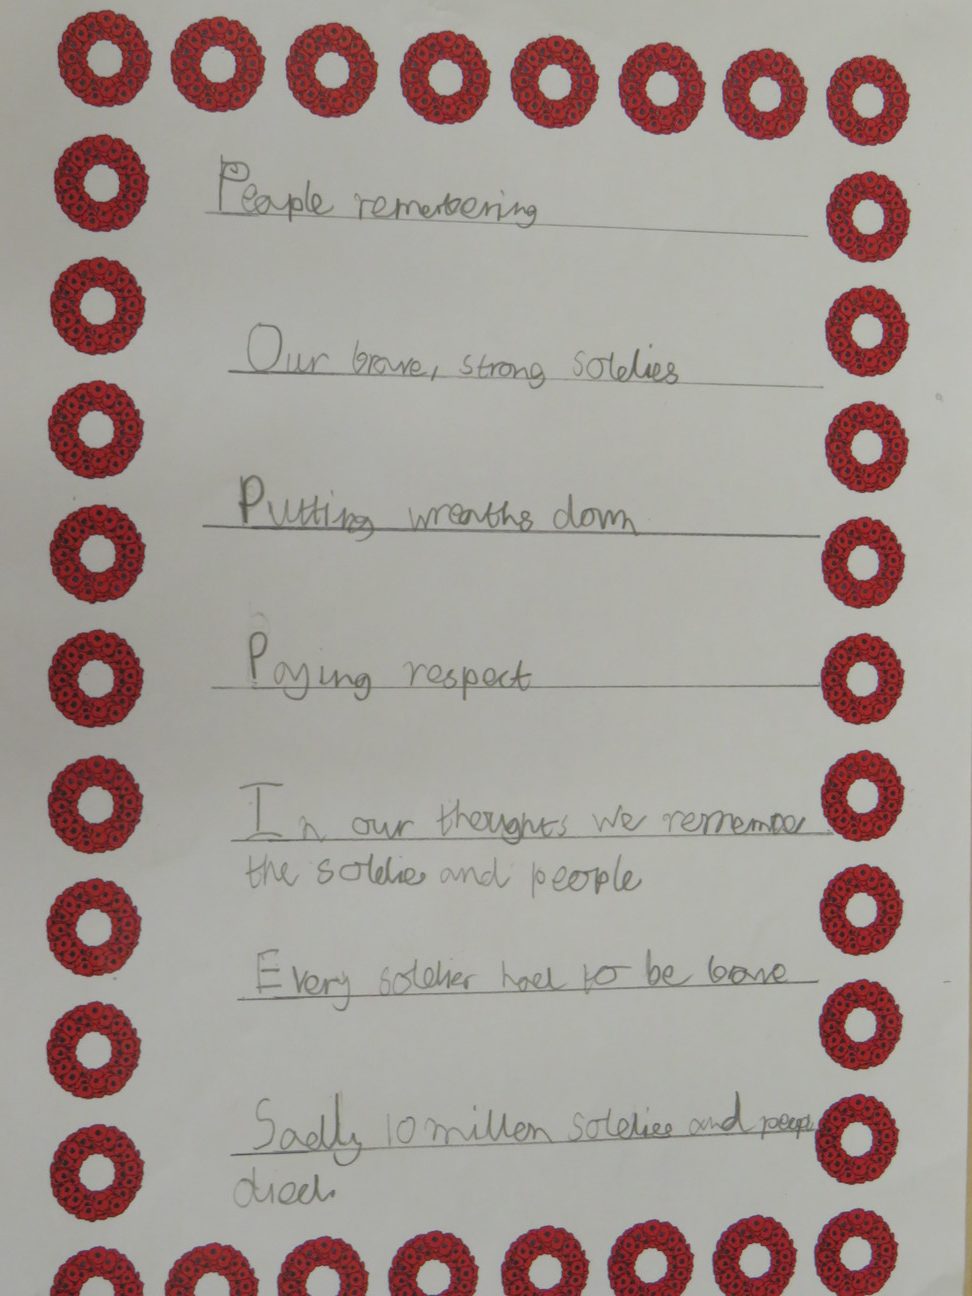 People remembering
Our brave, strong soldies
Putting wreaths down
Paying respect
In our thoughts we remember
the soldies and people
Every soldier had to be brave
Sadly 10 millon soldies and people
died.